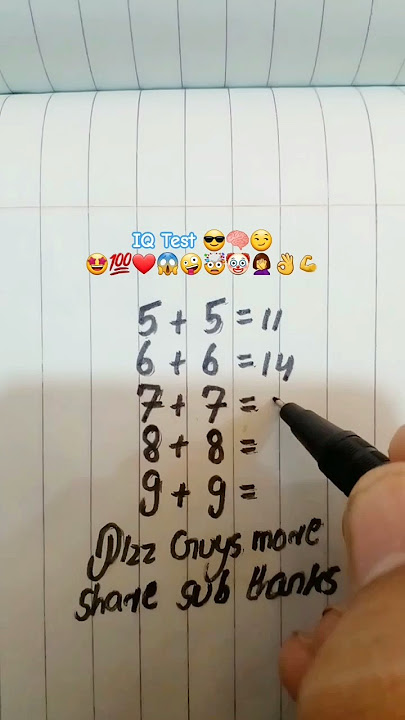 IQ Test 😎🧠😏
🤩💯❤️😱🤪🤯🤡🤦‍♀️👌💪
5 + 5 = 11
6 + 6 = 14
7 + 7 =
8 + 8 =
9 + 9 =
Plzz Guys more
share sub thanks